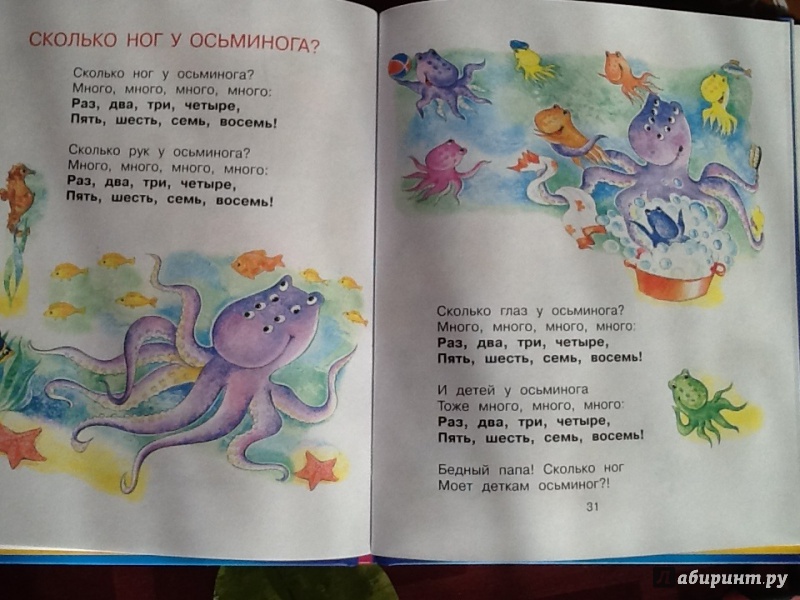 СКОЛЬКО НОГ У ОСЬМИНОГА?
Сколько ног у осьминога?
Много, много, много, много:
Раз, два, три, четыре,
Пять, шесть, семь, восемь!
Сколько рук у осьминога?
Много, много, много, много:
Раз, два, три, четыре,
Пять, шесть, семь, восемь!
Сколько глаз у осьминога?
Много, много, много, много:
Раз, два, три, четыре,
Пять, шесть, семь, восемь!
И детей у осьминога
Тоже много, много, много:
Раз, два, три, четыре,
Пять, шесть, семь, восемь!
Бедный папа! Сколько ног
Моет деткам осьминог?!
31
Лабиринт.ру